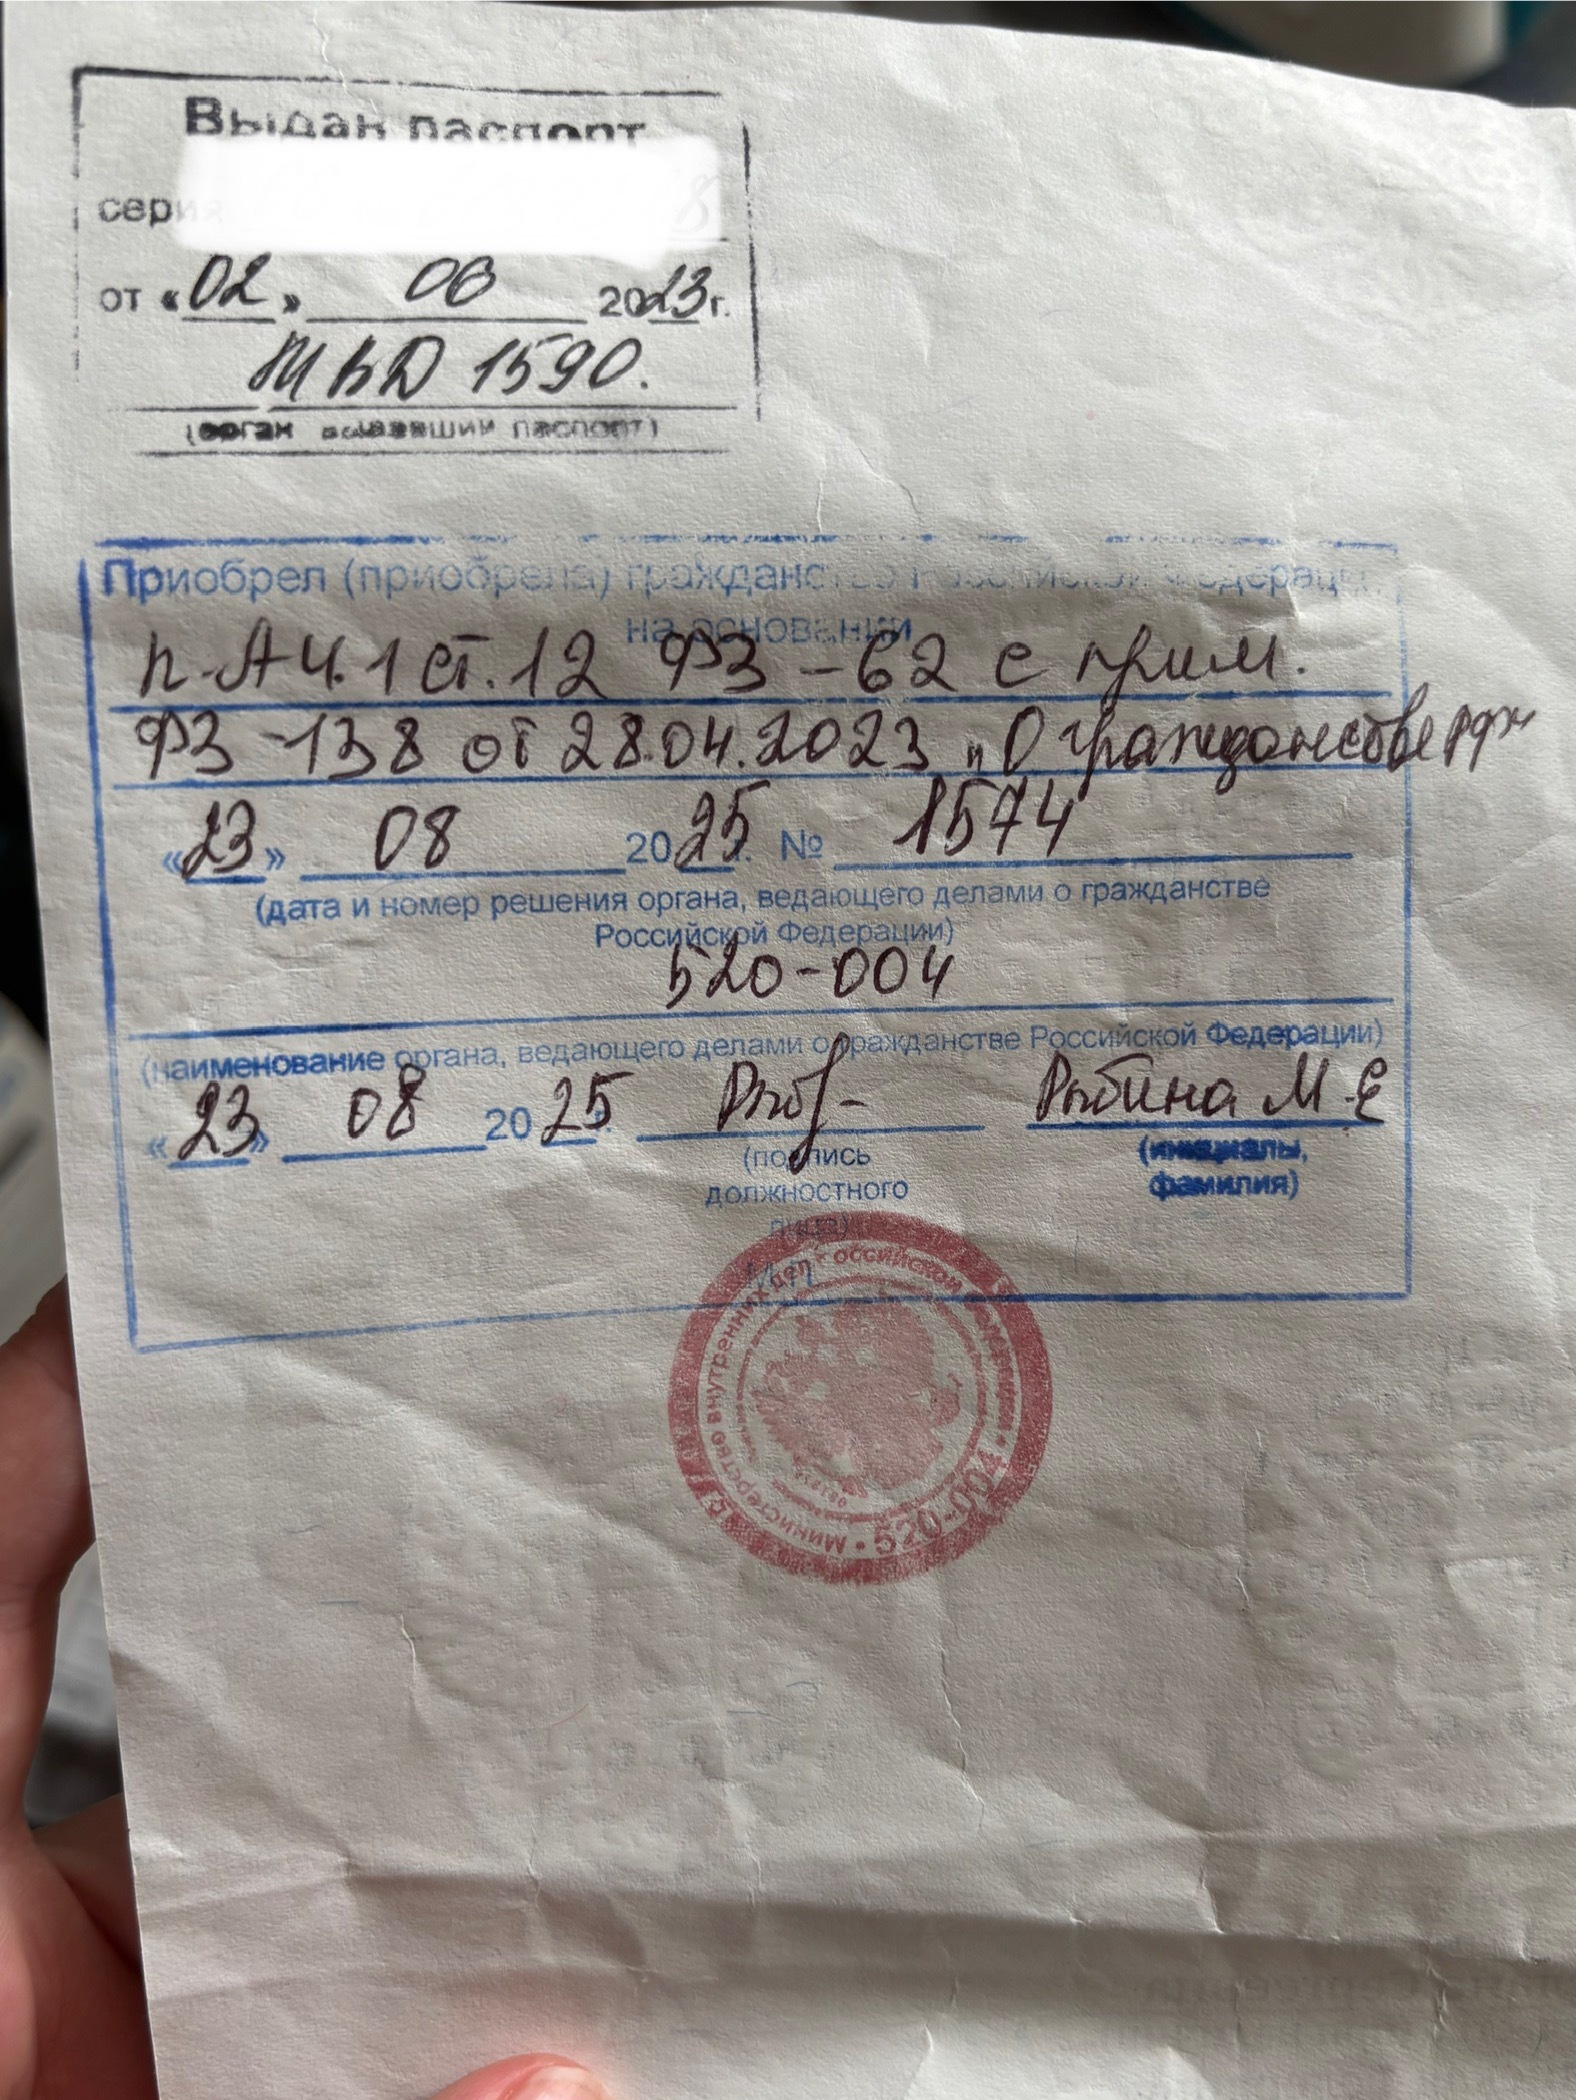 Выдан паспорт
серия
от «02» 06 2023 г.
МВД 1590.
(орган выдавший паспорт)
Приобрел (приобрела) гражданство Российской Федерации
на основании
п. А ч. 1 ст. 12 ФЗ - 62 с прим.
ФЗ - 138 от 28.04.2023 "О гражданстве РФ"
«23» 08 2025 г. № 1574
(дата и номер решения органа, ведающего делами о гражданстве
Российской Федерации)
520-004
(наименование органа, ведающего делами о гражданстве Российской Федерации)
«23» 08 2025 г. Рыбина М.Е
(подпись
должностного
лица)
(инициалы,
фамилия)
М.П.
Министерство внутренних дел Российской Федерации • 520-004